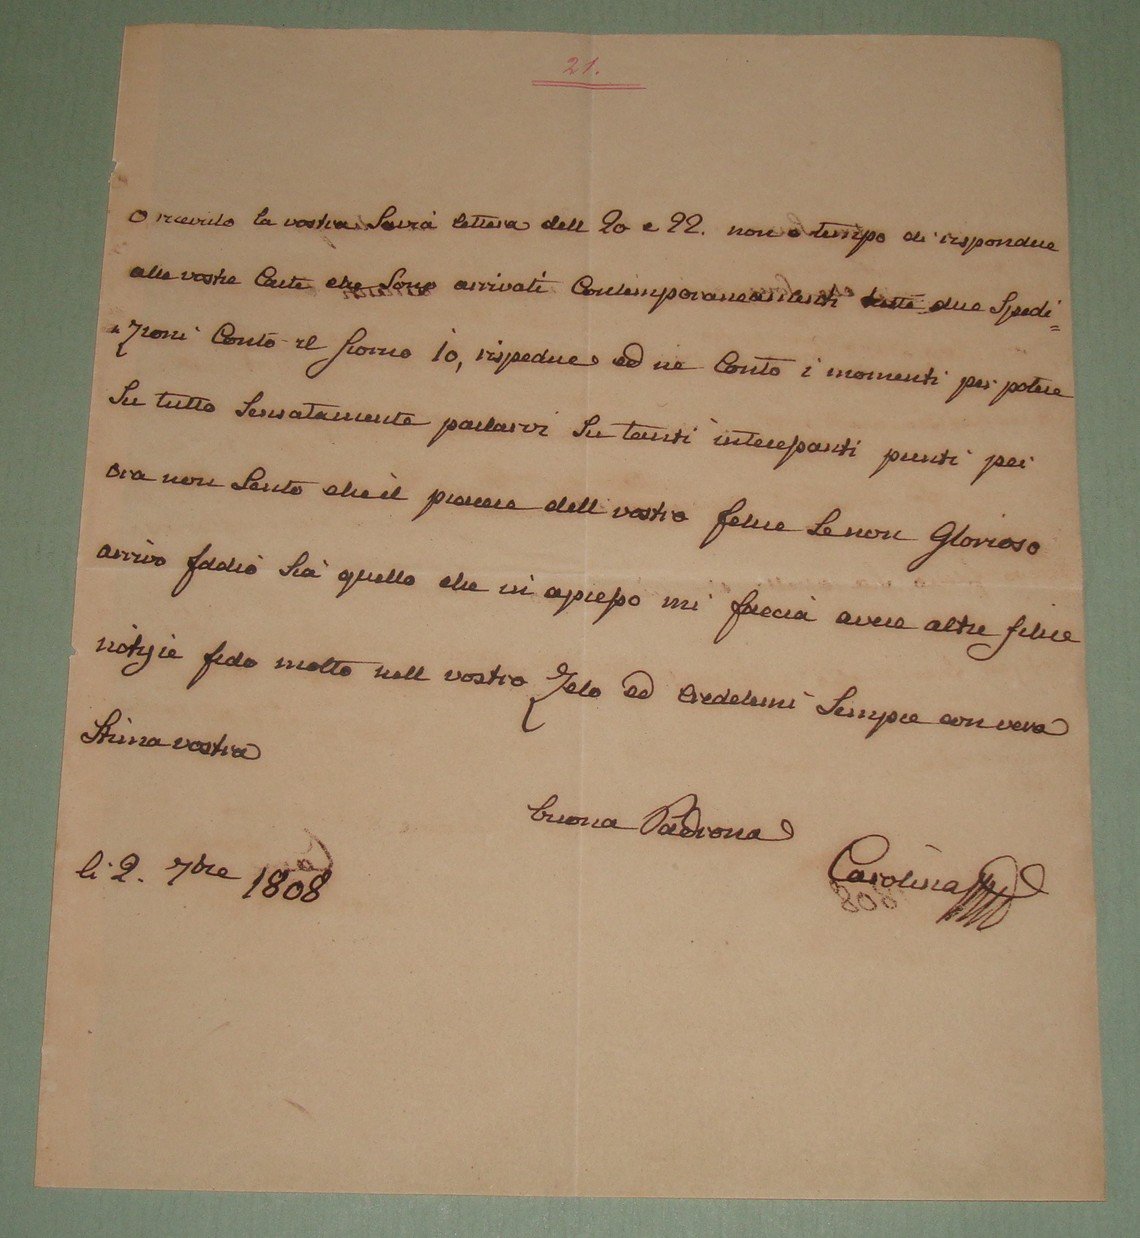 21.
o ricevuto la vostra Savia lettera dell 20 e 22. non o tempo di rispondere
alle vostre Carte che Sono arrivati Contemporaneamenti tutte due Spedi=
zioni Conto il Giorno 10, rispedire ed ne Conto i momenti per potere
Su tutto Sensatamente parlarvi Su tanti interessanti punti per
ora non Sento che il piacere dell vostro felice Se non Glorioso
arrivo Iddio Sia quello che in apresso mi faccia avere altre felice
notizie fido molto nell vostro Zelo ed Credetemi Sempre con vera
Stima vostra
buona Padrona
Carolina
li 2. 7bre 1808